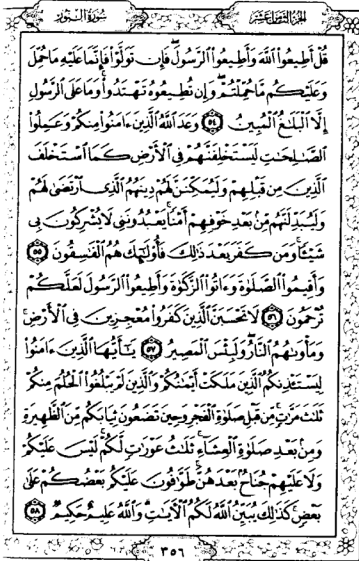 الجزء الثامن عشر
سورة النور
قُلْ أَطِيعُوا۟ ٱللَّهَ وَأَطِيعُوا۟ ٱلرَّسُولَ ۖ فَإِن تَوَلَّوْا۟ فَإِنَّمَا عَلَيْهِ مَا حُمِّلَ
وَعَلَيْكُم مَّا حُمِّلْتُمْ ۖ وَإِن تُطِيعُوهُ تَهْتَدُوا۟ ۚ وَمَا عَلَى ٱلرَّسُولِ
إِلَّا ٱلْبَلَٰغُ ٱلْمُبِينُ ٥٤ وَعَدَ ٱللَّهُ ٱلَّذِينَ ءَامَنُوا۟ مِنكُمْ وَعَمِلُوا۟
ٱلصَّٰلِحَٰتِ لَيَسْتَخْلِفَنَّهُمْ فِى ٱلْأَرْضِ كَمَا ٱسْتَخْلَفَ
ٱلَّذِينَ مِن قَبْلِهِمْ وَلَيُمَكِّنَنَّ لَهُمْ دِينَهُمُ ٱلَّذِى ٱرْتَضَىٰ لَهُمْ
وَلَيُبَدِّلَنَّهُم مِّنۢ بَعْدِ خَوْفِهِمْ أَمْنًا ۚ يَعْبُدُونَنِى لَا يُشْرِكُونَ بِى
شَيْـًٔا ۚ وَمَن كَفَرَ بَعْدَ ذَٰلِكَ فَأُو۟لَٰٓئِكَ هُمُ ٱلْفَٰسِقُونَ ٥٥
وَأَقِيمُوا۟ ٱلصَّلَوٰةَ وَءَاتُوا۟ ٱلزَّكَوٰةَ وَأَطِيعُوا۟ ٱلرَّسُولَ لَعَلَّكُمْ
تُرْحَمُونَ ٥٦ لَا تَحْسَبَنَّ ٱلَّذِينَ كَفَرُوا۟ مُعْجِزِينَ فِى ٱلْأَرْضِ ۚ
وَمَأْوَىٰهُمُ ٱلنَّارُ ۖ وَلَبِئْسَ ٱلْمَصِيرُ ٥٧ يَٰٓأَيُّهَا ٱلَّذِينَ ءَامَنُوا۟
لِيَسْتَـْٔذِنكُمُ ٱلَّذِينَ مَلَكَتْ أَيْمَٰنُكُمْ وَٱلَّذِينَ لَمْ يَبْلُغُوا۟ ٱلْحُلُمَ مِنكُمْ
ثَلَٰثَ مَرَّٰتٍ ۚ مِّن قَبْلِ صَلَوٰةِ ٱلْفَجْرِ وَحِينَ تَضَعُونَ ثِيَابَكُم مِّنَ ٱلظَّهِيرَةِ
وَمِنۢ بَعْدِ صَلَوٰةِ ٱلْعِشَآءِ ۚ ثَلَٰثُ عَوْرَٰتٍ لَّكُمْ ۚ لَيْسَ عَلَيْكُمْ
وَلَا عَلَيْهِمْ جُنَاحٌۢ بَعْدَهُنَّ ۚ طَوَّٰفُونَ عَلَيْكُم بَعْضُكُمْ عَلَىٰ
بَعْضٍ ۚ كَذَٰلِكَ يُبَيِّنُ ٱللَّهُ لَكُمُ ٱلْءَايَٰتِ ۗ وَٱللَّهُ عَلِيمٌ حَكِيمٌ ٥٨
٣٥٦